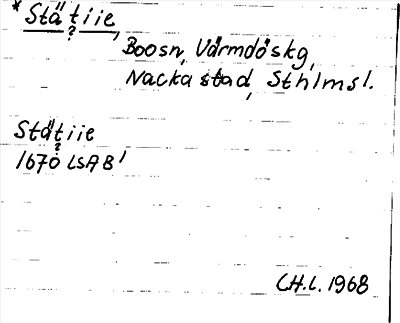 * Stätiie,
?
Boosn, Värmdöskg,
Nacka stad, Sthlmsl.
Stätiie
?
1670 LSAB'
CH.L. 1968